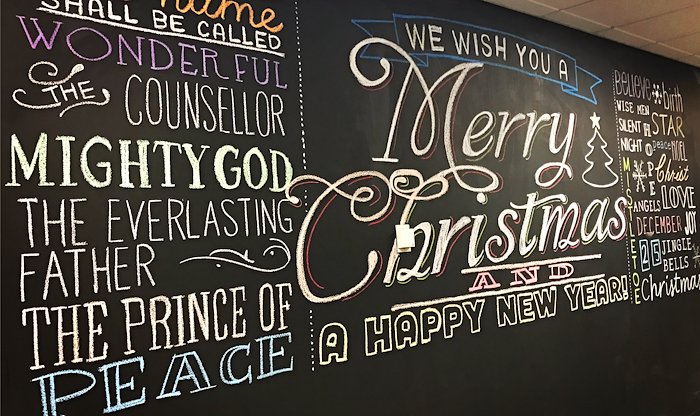 name
SHALL BE CALLED
WONDERFUL
THE COUNSELLOR
MIGHTY GOD
THE EVERLASTING
FATHER
THE PRINCE OF
PEACE
WE WISH YOU A
Merry
Christmas
AND
A HAPPY NEW YEAR!
BELIEVE birth
WISE MEN STAR
SILENT
NIGHT peace NOEL
HOPE Christ
ANGELS LOVE
DECEMBER JOY
25 JINGLE
BELLS
Christmas
MISTLETOE